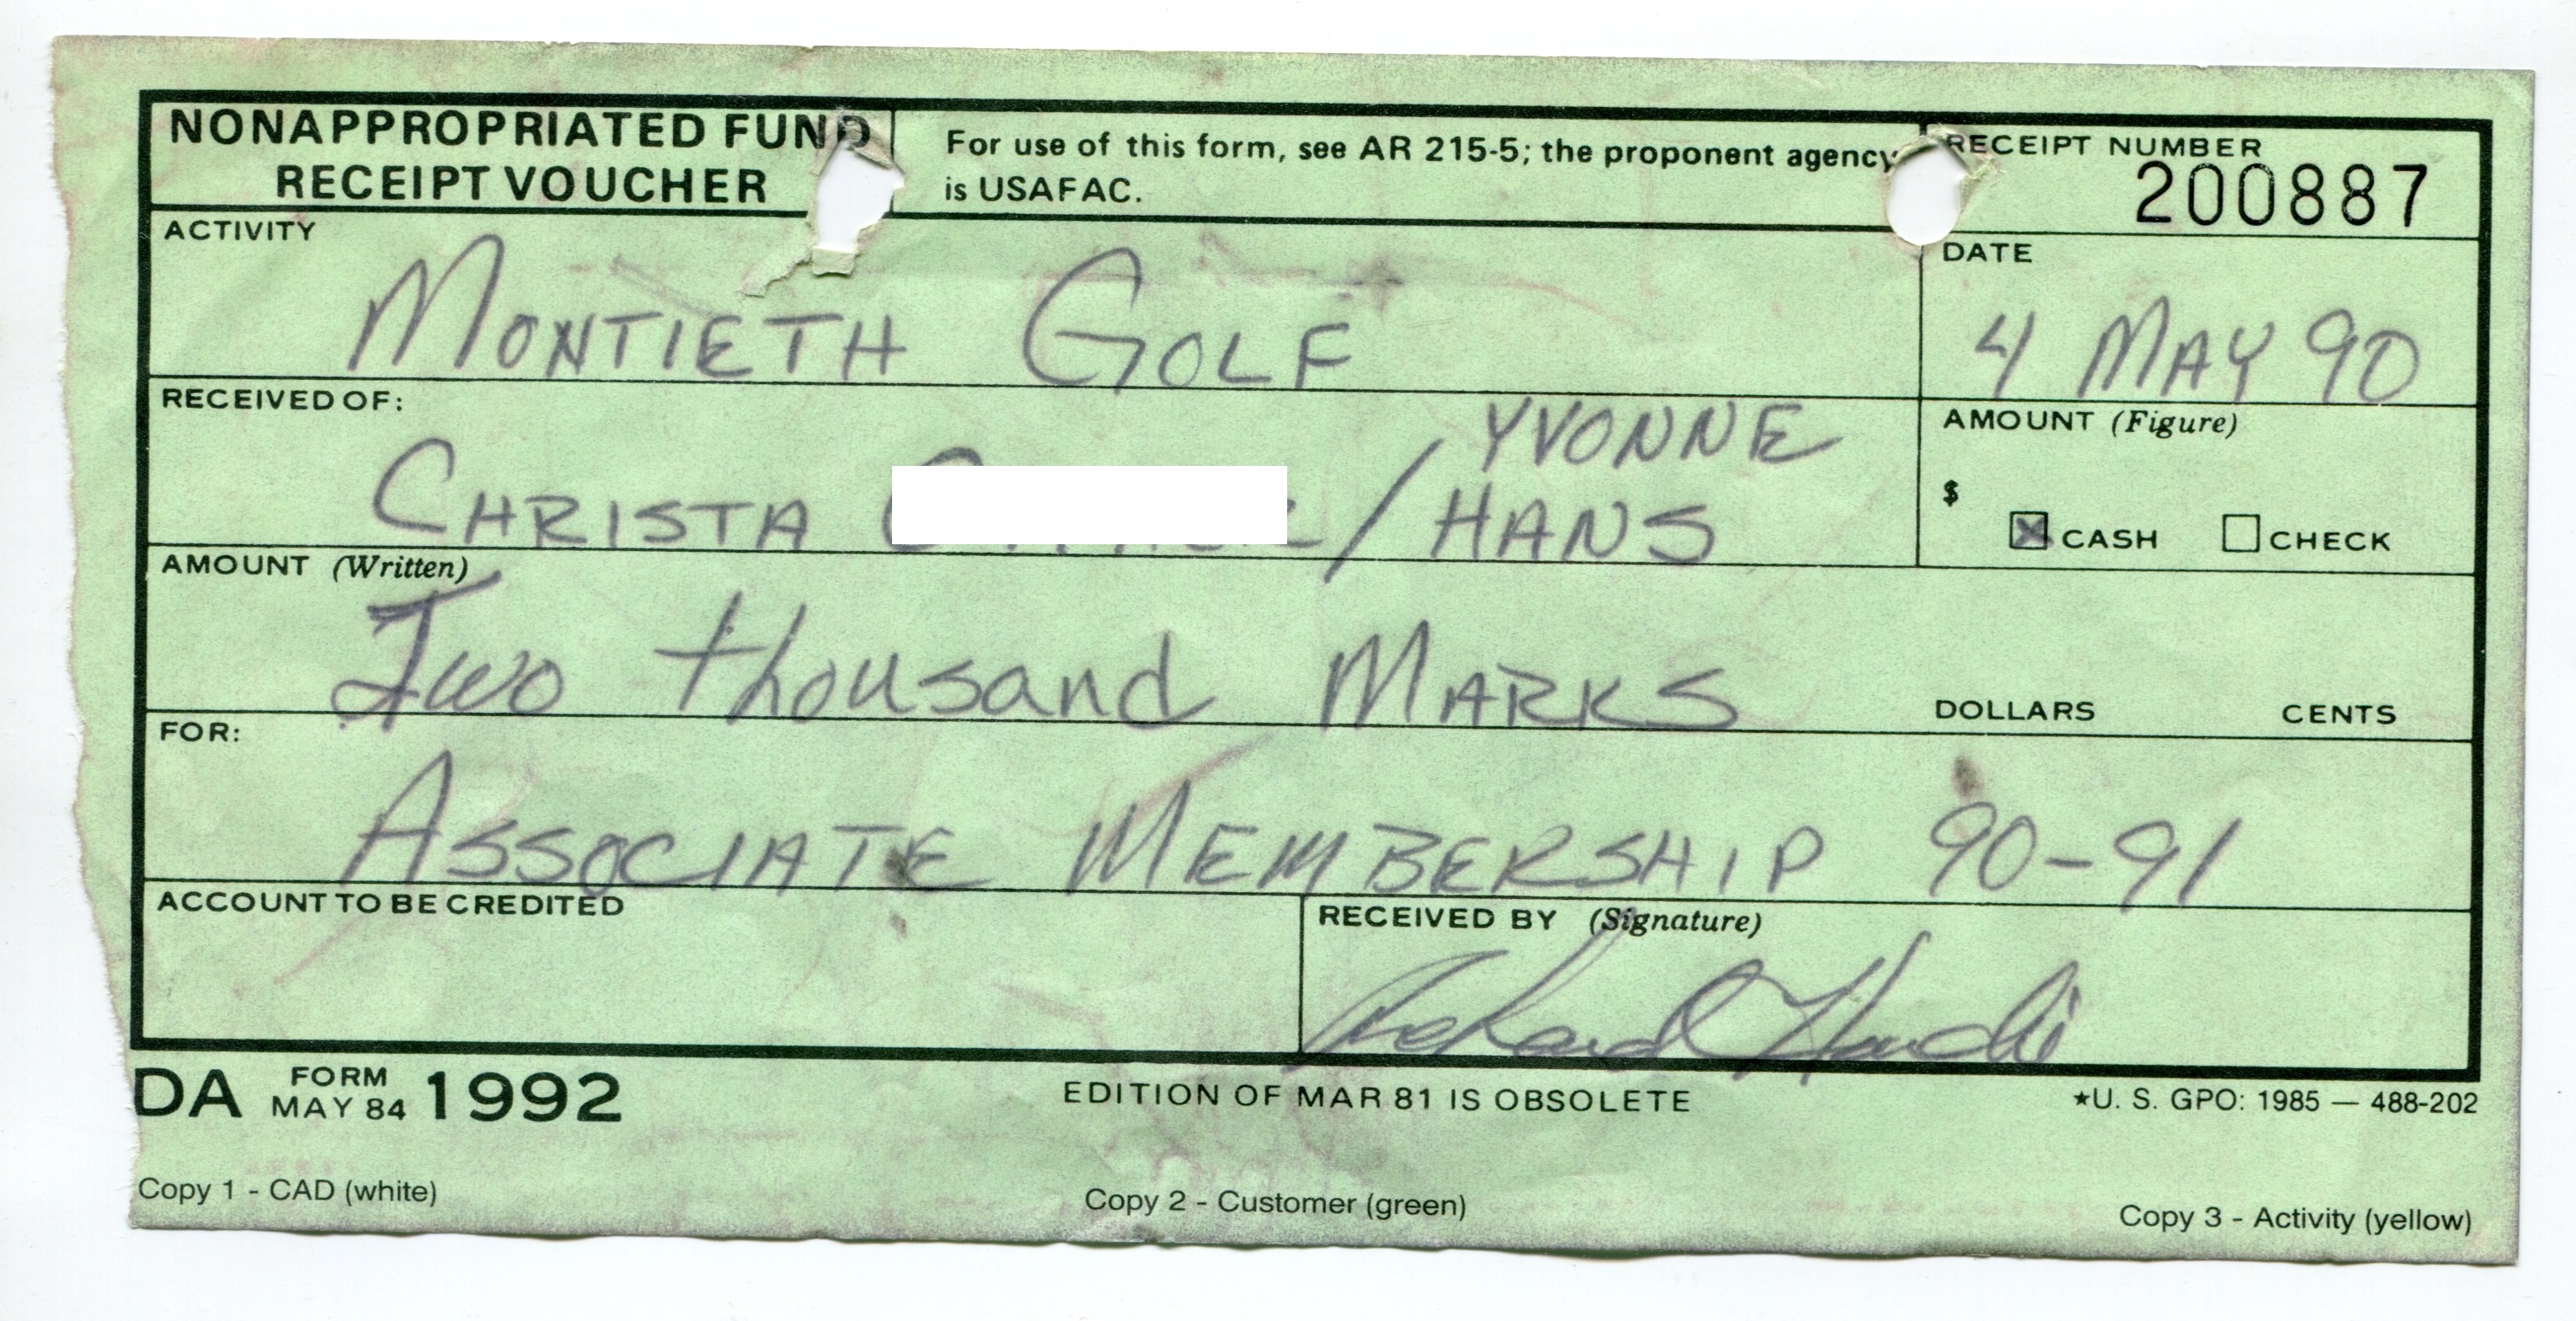 NONAPPROPRIATED FUND
RECEIPT VOUCHER
For use of this form, see AR 215-5; the proponent agency
is USAFAC.
RECEIPT NUMBER
200887
ACTIVITY
MONTIETH GOLF
DATE
4 MAY 90
RECEIVED OF:
CHRISTA / YVONNE
HANS
AMOUNT (Figure)
$
CASH CHECK
AMOUNT (Written)
Two thousand MARKS
DOLLARS CENTS
FOR:
ASSOCIATE MEMBERSHIP 90-91
ACCOUNT TO BE CREDITED
RECEIVED BY (Signature)
DA FORM MAY 84 1992
EDITION OF MAR 81 IS OBSOLETE
★U. S. GPO: 1985 — 488-202
Copy 1 - CAD (white)
Copy 2 - Customer (green)
Copy 3 - Activity (yellow)